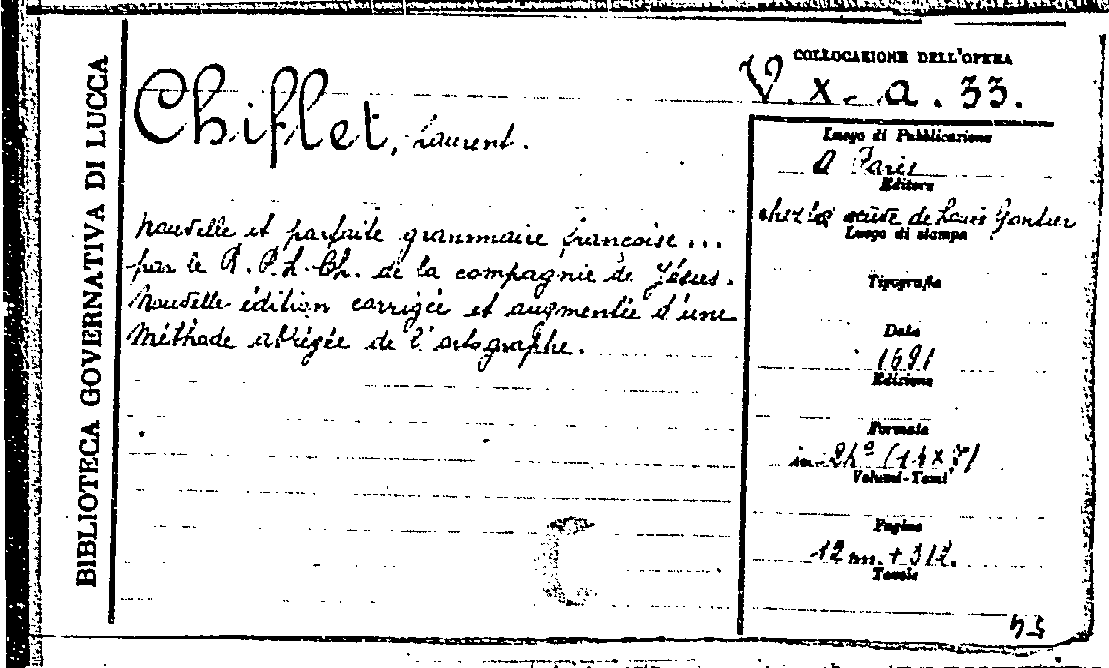 BIBLIOTECA GOVERNATIVA DI LUCCA
COLLOCAZIONE DELL'OPERA
V. x. a. 33.
Chiflet, Laurent.
Nouvelle et parfaite grammaire françoise ...
par le R. P. L. Ch. de la compagnie de Jésus.
Nouvelle édition corrigée et augmentée d'une
Méthode abrégée de l'ortographe.
Luogo di Pubblicazione
A Paris
Editore
chez la veuve de Louis Gontier
Luogo di stampa
Tipografia
Data
1691
Edizione
Formato
in-24º (14x7)
Volumi-Tomi
Pagine
12 nn. + 312.
Tavole
54